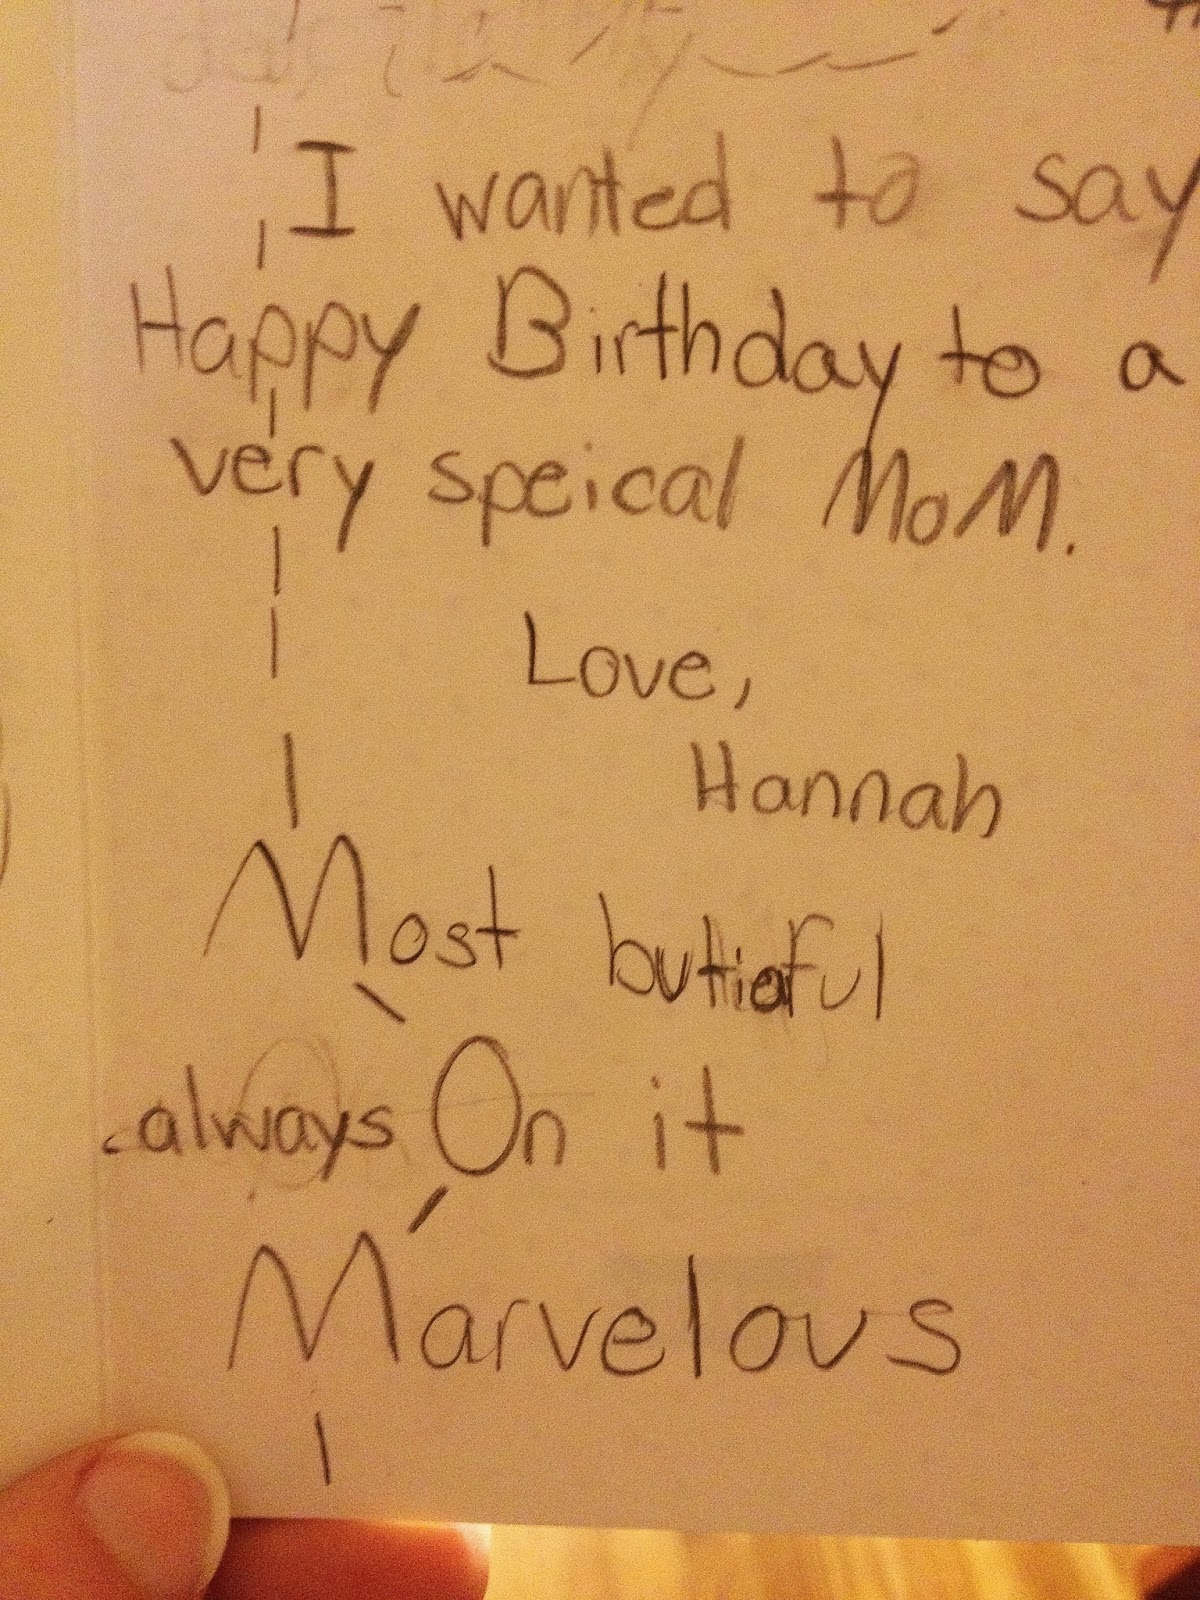 I wanted to say
Happy Birthday to a
very speical MoM.
Love,
Hannah
Most buttieful
always On it
Marvelous